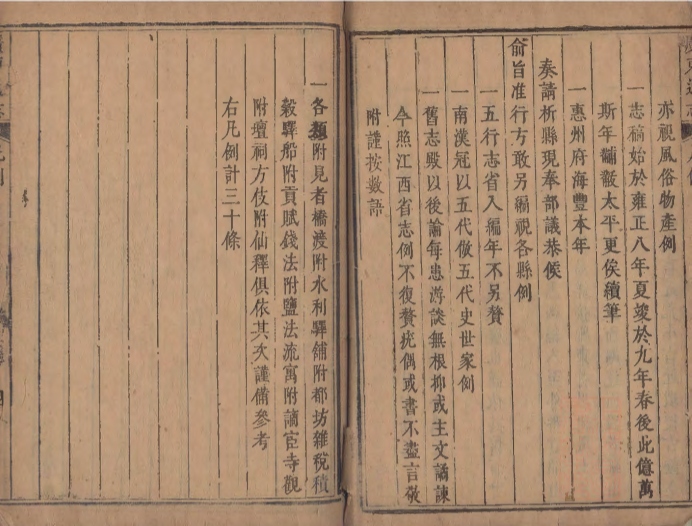 亦視風俗物產例
一志稿始於雍正八年夏竣於九年春後此億萬
斯年黼黻太平更俟續筆
一惠州府海豐本年
奏請析縣現奉部議恭候
俞旨准行方敢另編視各縣例
一五行志省入編年不另贅
一南漢冠以五代倣五代史世家例
一舊志殿以後論每患游談無根抑或主文譎諫
今照江西省志例不復贅疣偶或書不盡言敬
附謹按數語
一各類附見者橋渡附水利驛鋪附都坊雜稅積
穀驛船附貢賦錢法附鹽法流寓附謫宦寺觀
附壇祠方伎附仙釋俱依其次謹備參考
右凡例計三十條
凡例